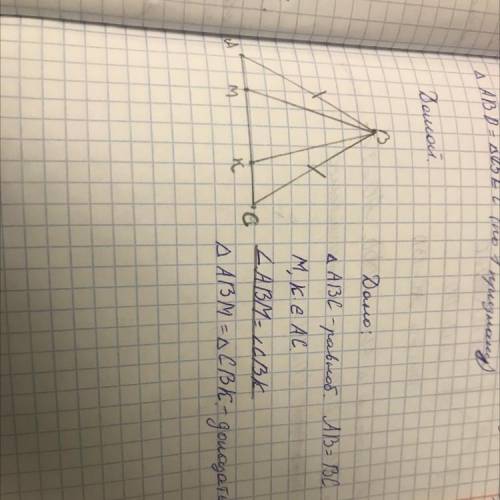 △ABD = △CBE (по 1 признаку)
Домой.
B
A
M
K
C
Дано:
△ABC - равноб. AB = BC
M, K ∈ AC.
∠ABM = ∠CBK
△ABM = △CBK - доказать